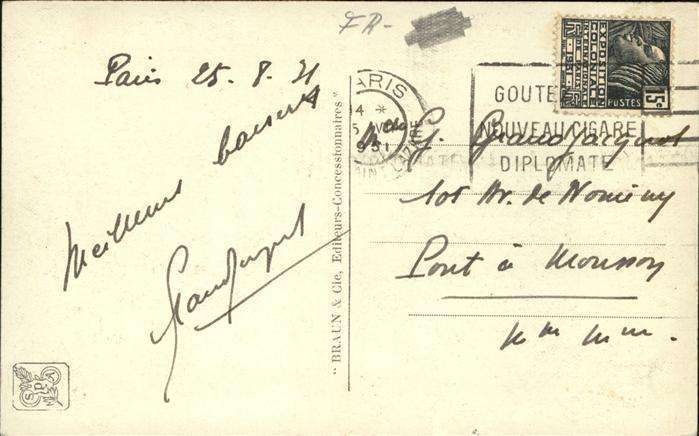 FR-
Paris 25.8.31
Meilleurs baisers
Grandjacquot
"BRAUN & Cie, Editeurs-Concessionnaires"
PARIS
1931
GOUTE
NOUVEAU CIGARE
DIPLOMATE
EXPOSITION
COLONIALE
INTERNATIONALE
PARIS 1931
15c
POSTES
G. Grandjacquot
101 Av. de Nomeny
Pont à Mousson